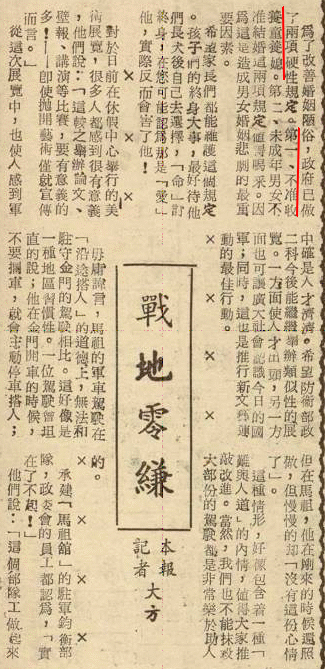 為了改善婚姻陋俗,政府已做
了兩項硬性規定。第一、不准收
養童養媳。第二、未成年男女不
准結婚這兩項規定值得喝采。因
為這是造成男女婚姻悲劇的最重
要因素。
希望家長們都能維護這個規定
。孩子們的終身大事,最好待他
們長大後自己去選擇,「命」訂
終身,在您可能認為那是「愛」
他,實際反而會害了他!
× × ×
對於日前在休假中心舉行的美
術展覽,很多人都感到很有意義
,他們說:「這較之舉辦論文、
壁報、講演等比賽,要有意義的
多!——即使拋開藝術僅就宣傳
而言。」
從這次展覽中,也使人感到軍
中確是人才濟濟。希望防衛部政
二科今後能繼續舉辦類似性的展
覽。一方面使人才出頭,另一方
面也可讓廣大社會認識今日的國
軍;同時,這也是推行新文藝運
動的最佳行動。
× × × ×
戰地零縑
本報
記者 大方
毋庸諱言,馬祖的軍車駕駛在
「沿途搭人」的道德上,無法和
駐守金門的駕駛相比。這好像是
一種地區習慣性。一位駕駛曾坦
直的說;他在金門開車的時候,
不要攔車,就會主動停車搭人;
但在馬祖,他在剛來的時候還照
做,但慢慢的却「沒有這份心情
了」。
這種情形,好像包含着一種「
難與人道」的內情,值得大家推
敲改進。當然,我們也不能抹殺
大部份的駕駛都是非常樂於助人
的。
× × ×
承建「馬祖舘」的駐軍鈞衡部
隊,政委會的員工都認為,「實
在了不起!」
他們說:「這個部隊工做起來